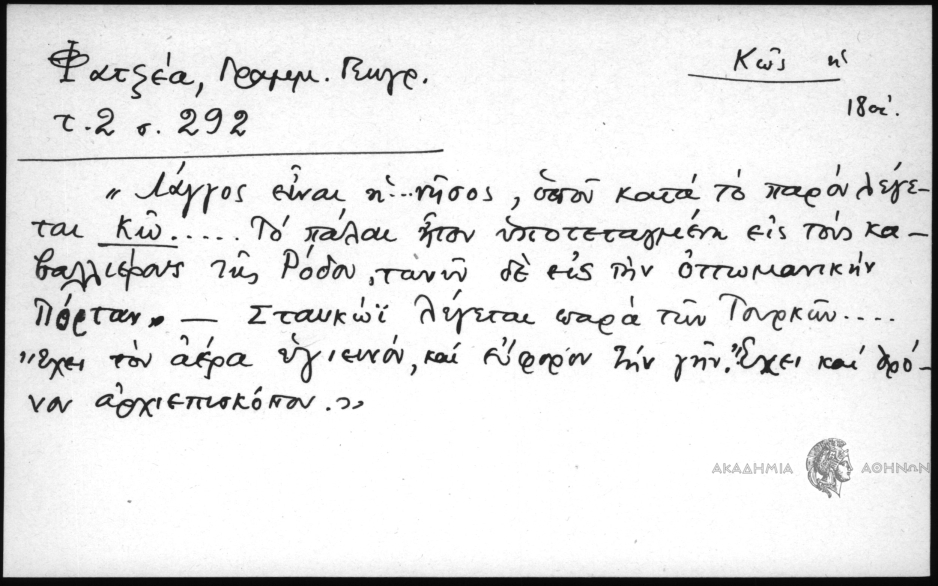 Φατζέα, Γραμμ. Γεωγρ.
Κῶς ἡ
τ. 2 σ. 292
18 αἰ.
„ Λάγγος εἶναι ἡ ... νῆσος, ὁποῦ κατά τό παρόν λέγε-
ται Κῶ..... Τό πάλαι ἦτον ὑποτεταγμένη εἰς τούς κα-
βαλλιέρους τῆς Ρόδου, τανῦν δὲ εἰς τὴν ὀττωμανικήν
Πόρταν„ — Σταυκώϊ λέγεται παρά τῶν Τουρκῶν....
„Ἔχει τὸν ἀέρα ὑγιεινόν, καί εὔφορον τήν γῆν. Ἔχει καί θρό-
νον ἀρχιεπισκόπου.„
ΑΚΑΔΗΜΙΑ ΑΘΗΝΩΝ